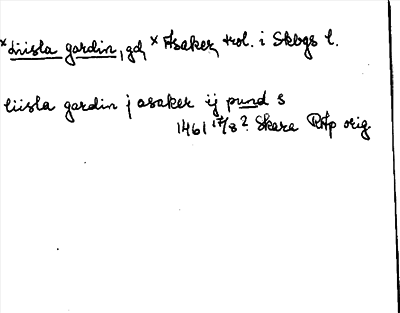 ×Liisla gardin, gd, ×Asaker, trol. i Skbgs l.
liisla gardin j asaker ij pund s
1461 17/8 ? Skara RAp orig